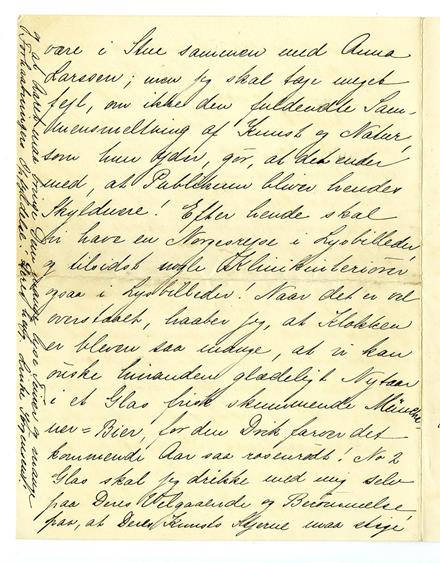 være i Stue sammen med Anna
Larssen; men jeg skal tage meget
fejl, om ikke den fuldendte Sam-
mensmeltning af Kunst og Natur,
som hun yder, gør, at det ender
med, at Publikum bliver hendes
Skyldnere! Efter hende skal
vi have en Norgesrejse i Lysbilleder
og tilsidst nogle Klinikinteriører
ogsaa i Lysbilleder! Naar det er vel
overstaaet, haaber jeg, at Klokken
er bleven saa mange, at vi kan
ønske hinanden glædeligt Nytaar
i et Glas frisk skummende Münche-
ner=Bier, for den Drik farver det
kommende Aar saa rosenrødt! No 2
Glas skal jeg drikke med mig selv
paa Deres Velgaaende og Berømmelse
paa, at Deres Kunsts Stjerne maa stige
og at Aaret maa bringe Dem mange lyse Timer og mange